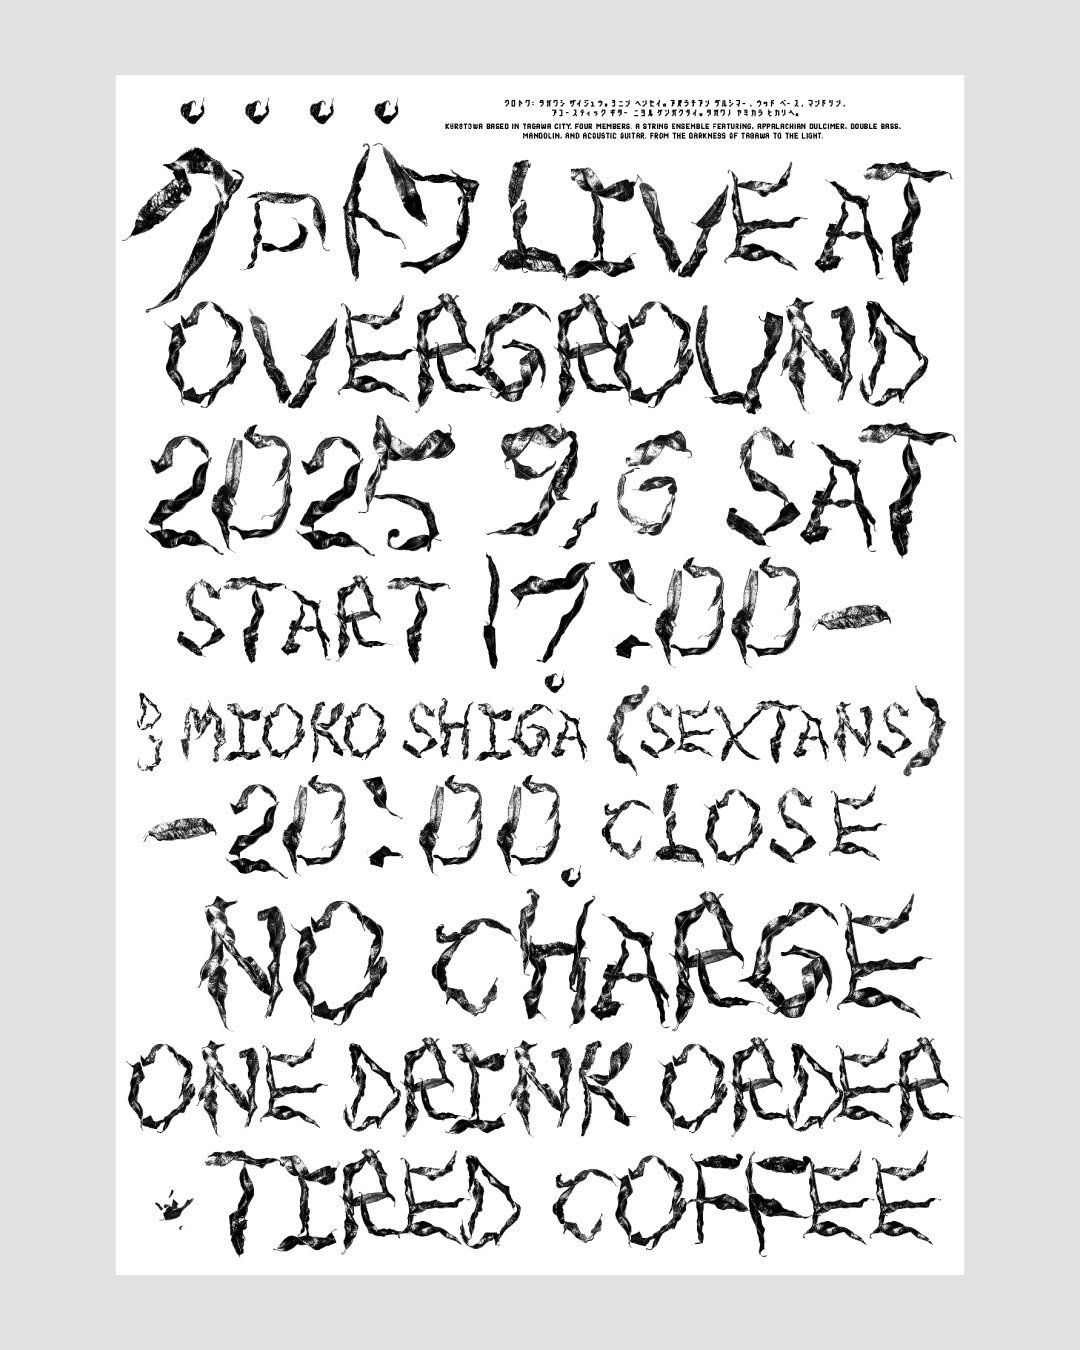 クロトワ: タガワシ ザイジュウ。ヨニン ヘンセイ。アパラチアン ダルシマー, ウッド ベース, マンドリン,
アコースティック ギター ニヨル ゲンガクタイ。タガワノ ヤミカラ ヒカリヘ。
KUROTOWA BASED IN TAGAWA CITY. FOUR MEMBERS. A STRING ENSEMBLE FEATURING, APPALACHIAN DULCIMER, DOUBLE BASS,
MANDOLIN, AND ACOUSTIC GUITAR. FROM THE DARKNESS OF TAGAWA TO THE LIGHT.
クロトワ LIVE AT
OVERGROUND
2025 9,6 SAT
START 17:00-
DJ MIOKO SHIGA (SEXTANS)
-20:00 CLOSE
NO CHARGE
ONE DRINK ORDER
TIRED COFFEE